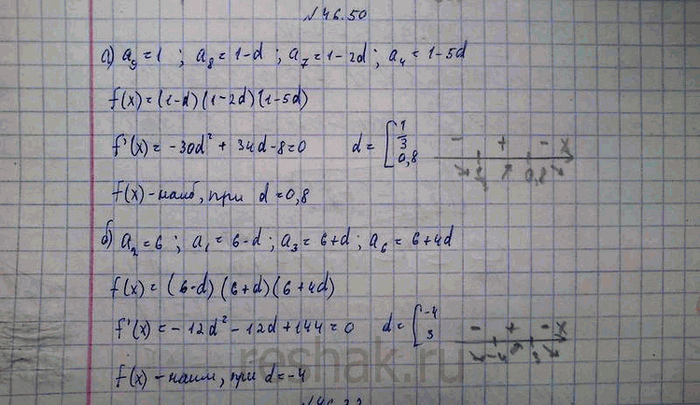 №46.50
а) a₉=1 ; a₈=1-d ; a₇=1-2d ; a₄=1-5d
f(x)=(1-d)(1-2d)(1-5d)
f'(x)=-30d²+34d-8=0 d=[1/3 0,8 - + - x 1/3 0,8
f(x)-наиб, при d=0,8
б) a₂=6 ; a₁=6-d ; a₃=6+d ; a₆=6+4d
f(x)=(6-d)(6+d)(6+4d)
f'(x)=-12d²-12d+144=0 d=[-4 3 - + - x -4 3
f(x)-наим, при d=-4
reshak.ru